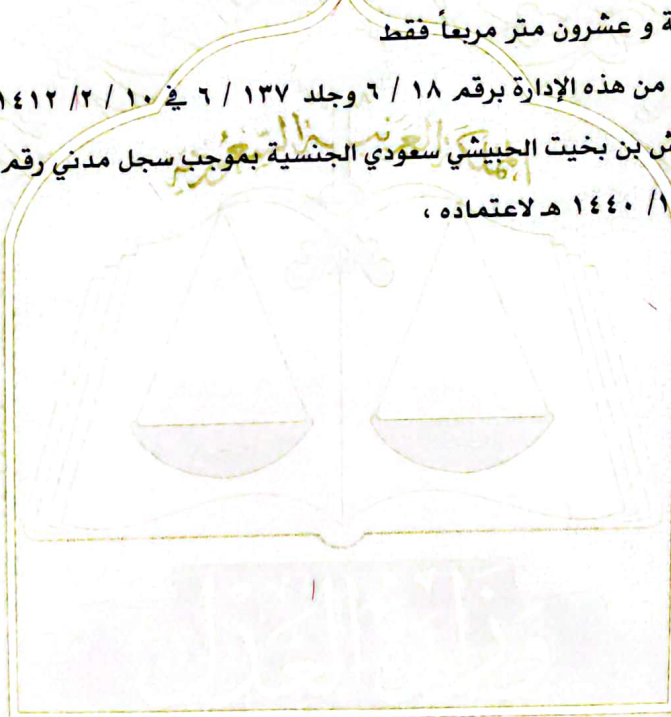 ة و عشرون متر مربعاً فقط
من هذه الإدارة برقم ١٨ / ٦ وجلد ١٣٧ / ٦ في ١٠ / ٢/ ١٤١٢
المملكة العربية السعودية
ش بن بخيت الحبيشي سعودي الجنسية بموجب سجل مدني رقم
١/ ١٤٤٠ هـ لاعتماده ،